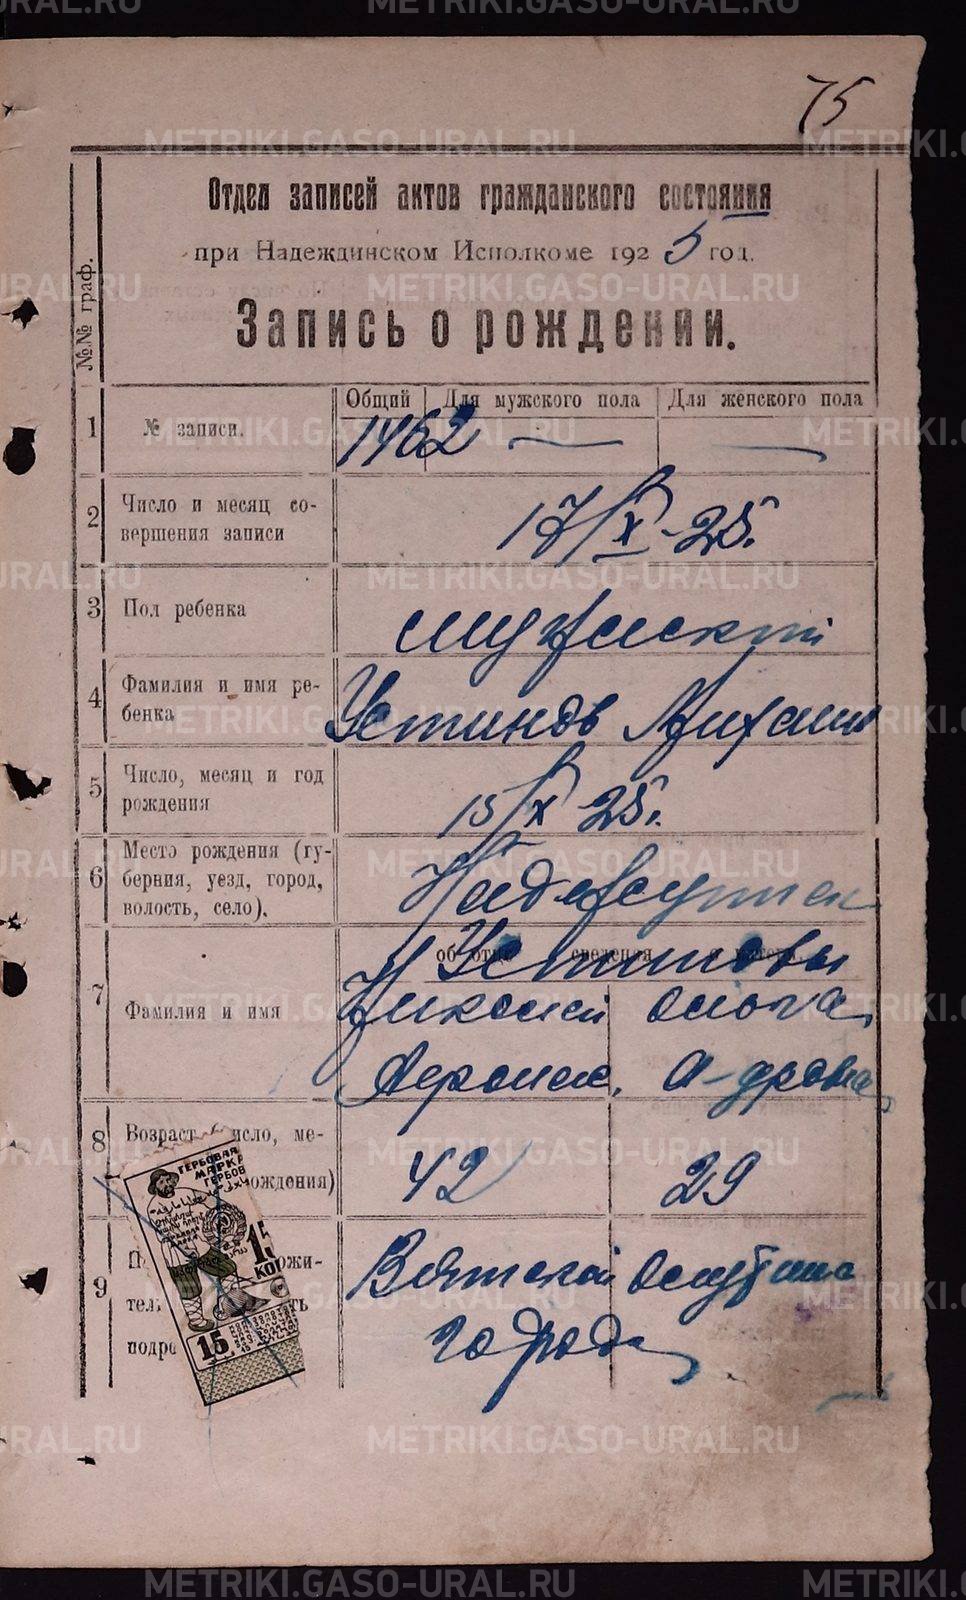 75
Отдел записей актов гражданского состояния
при Надеждинском Исполкоме 1925 год.
Запись о рождении.
№№ граф.
Общий Для мужского пола Для женского пола
1 № записи. 1462 — —
2 Число и месяц со-
вершения записи 17/X-25.
3 Пол ребенка мужской
4 Фамилия и имя ре-
бенка Устинов Михаил
5 Число, месяц и год
рождения 15/X 25.
6 Место рождения (гу-
берния, уезд, город,
волость, село). Надеждинск
об отце сведения о матери
Устиновы
7 Фамилия и имя Николай Ольга
А-дровна
8 Возраст число, ме-
рождения) 42 29
9 Вятской
города
тель
подро
ГЕРБОВАЯ
МАРКА
15
КОП
15
METRIKI.GASO-URAL.RU